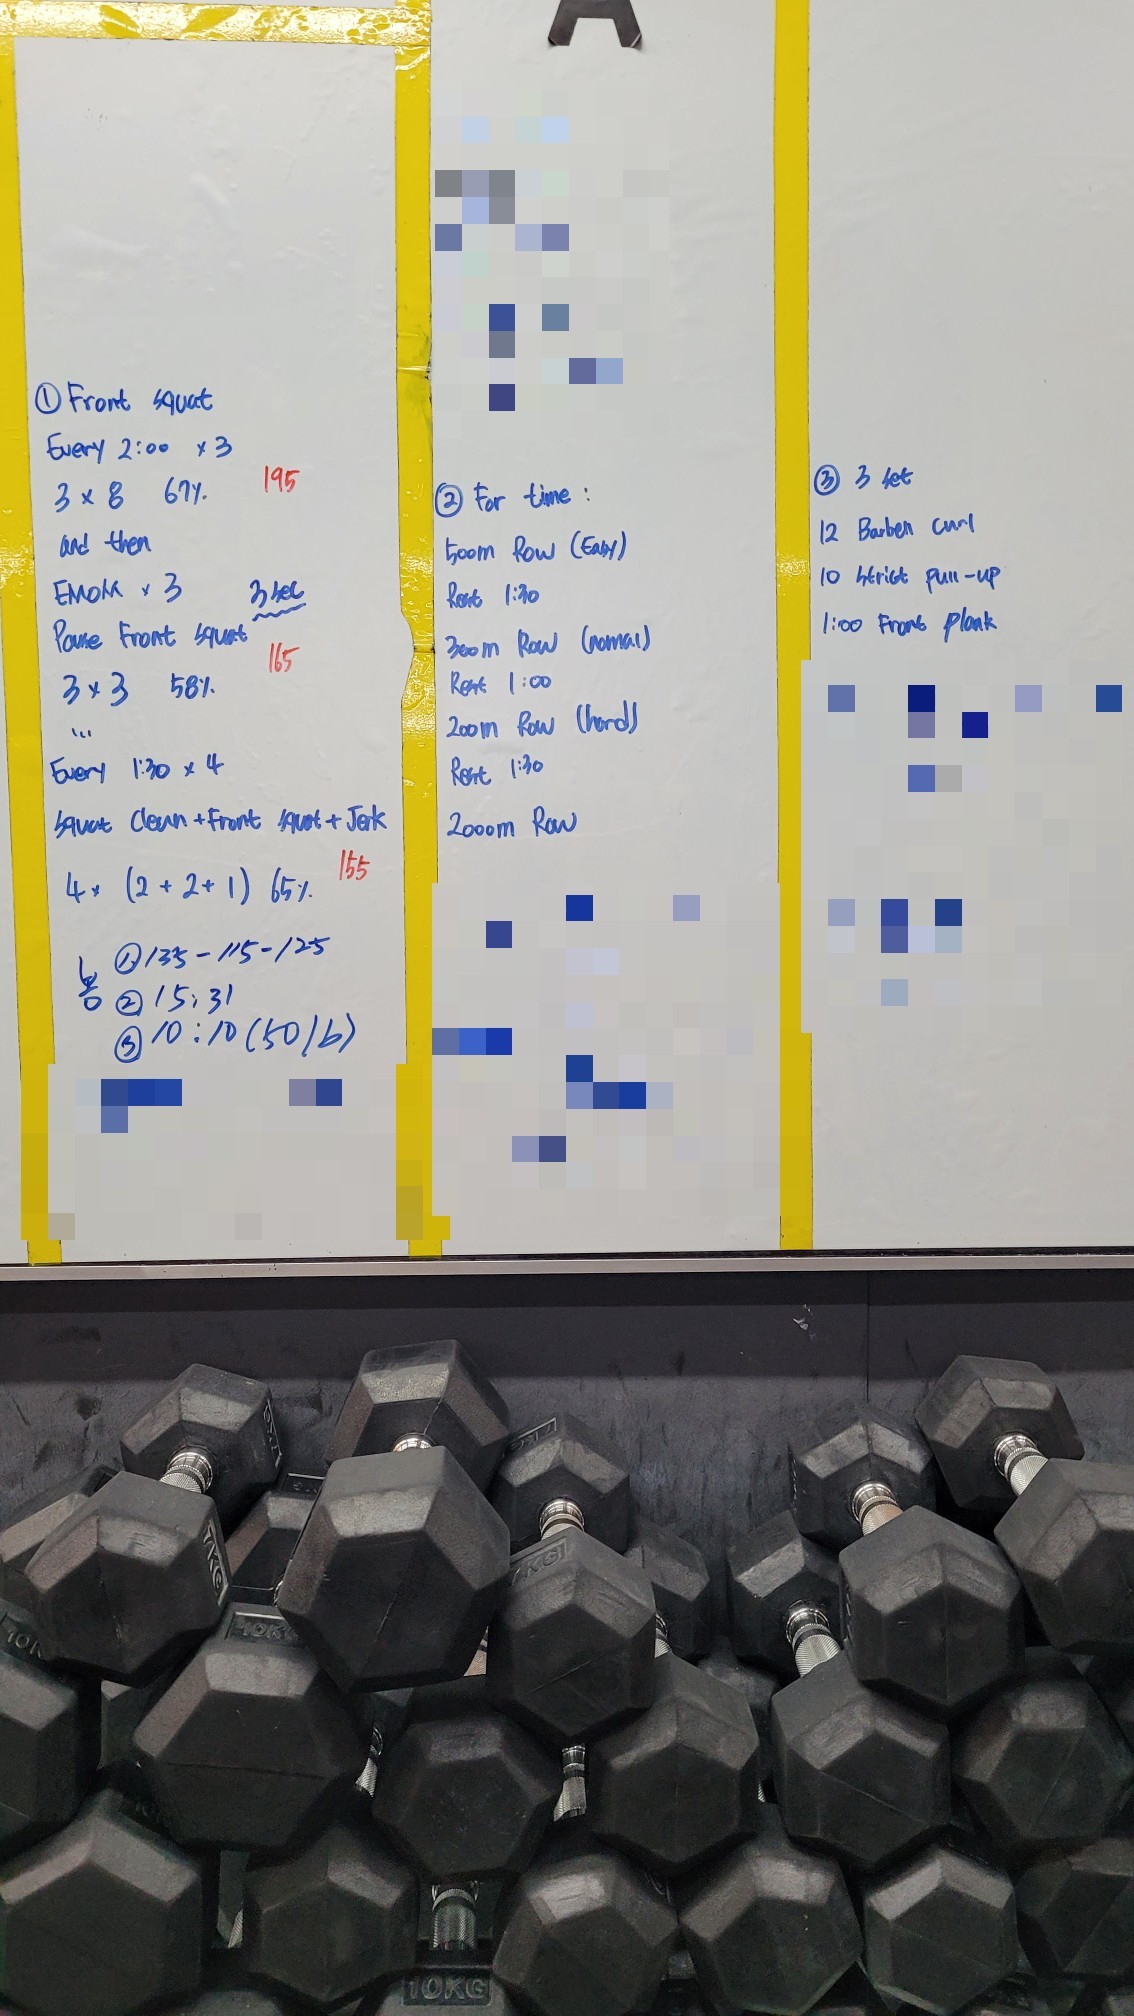 A
① Front squat
Every 2:00 × 3
3 × 8 67% 195
and then
EMOM × 3 3 sec
Pause Front squat
3 × 3 58% 165
...
Every 1:30 × 4
squat Clean + Front squat + Jerk
4 × (2 + 2 + 1) 65% 155
봉
① 135 - 115 - 125
② 15:31
③ 10:10 (50lb)
② For time :
500m Row (Easy)
Rest 1:30
300m Row (nomal)
Rest 1:00
200m Row (hard)
Rest 1:30
2000m Row
③ 3 set
12 Barbell curl
10 strict pull-up
1:00 Front plank
10KG
10KG